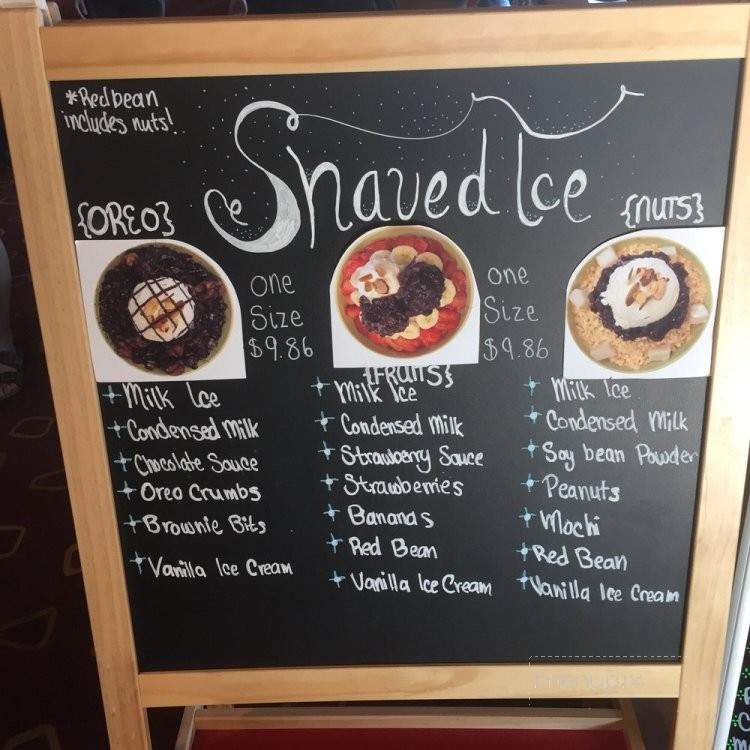 *Redbean
includes nuts!
Shaved Ice
{OREO}
One
Size
$9.86
Milk Ice
Condensed Milk
Chocolate Sauce
Oreo Crumbs
Brownie Bits
Vanilla Ice Cream
{FRUITS}
One
Size
$9.86
Milk Ice
Condensed Milk
Strawberry Sauce
Strawberries
Bananas
Red Bean
Vanilla Ice Cream
{NUTS}
Milk Ice
Condensed Milk
Soy bean Powder
Peanuts
Mochi
Red Bean
Vanilla Ice Cream